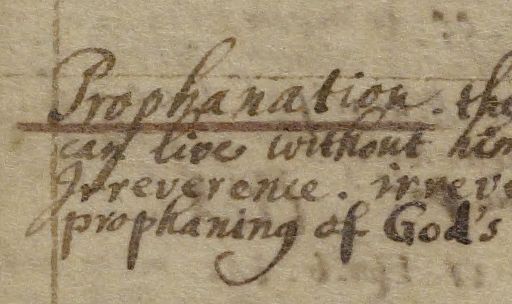 Prophanation. the
can live without him
Irreverence. irreve
prophaning of God's